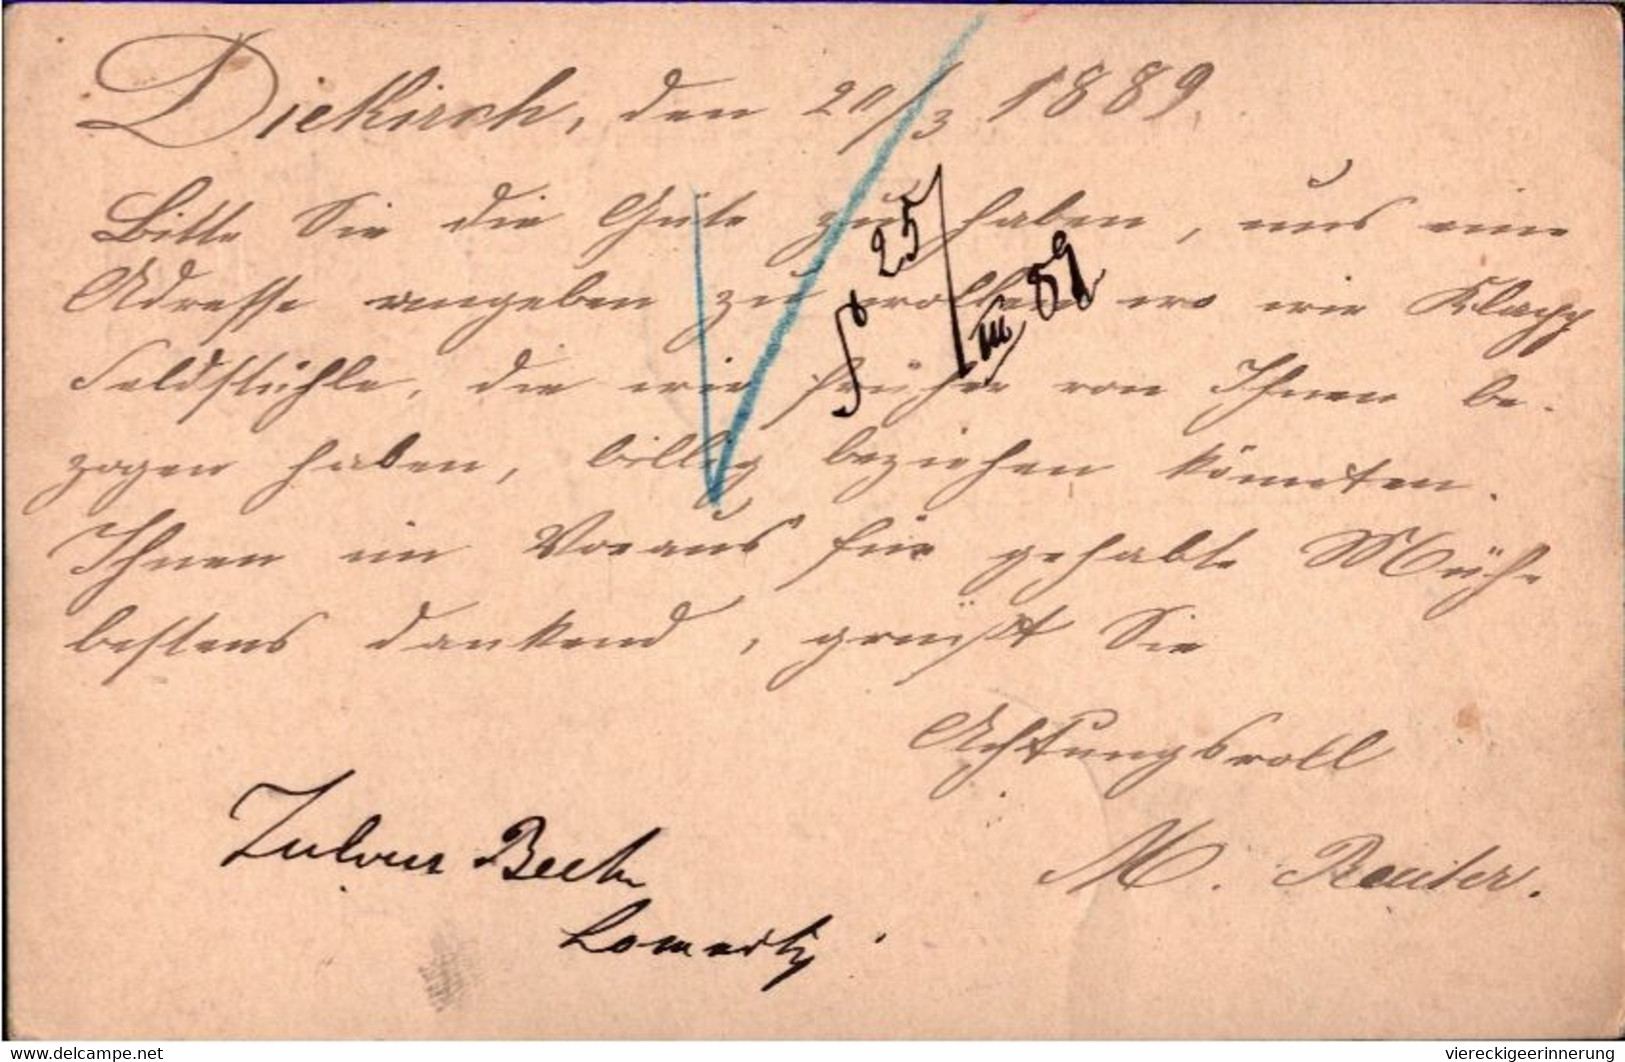 Diekirch, den 20/3 1889.
Bitte Sie die Güte zu haben, uns eine
Adresse angeben zu wollen wo wir Klapp
Feldstühle, die wir früher von Ihnen be-
zogen haben, billig beziehen könnten.
Ihnen im Voraus für gehabte Mühe
bestens dankend, grüßt Sie
Achtungsvoll
M. Reuter.
25/III 89
Beck
www.delcampe.net
viereckigeerinnerung